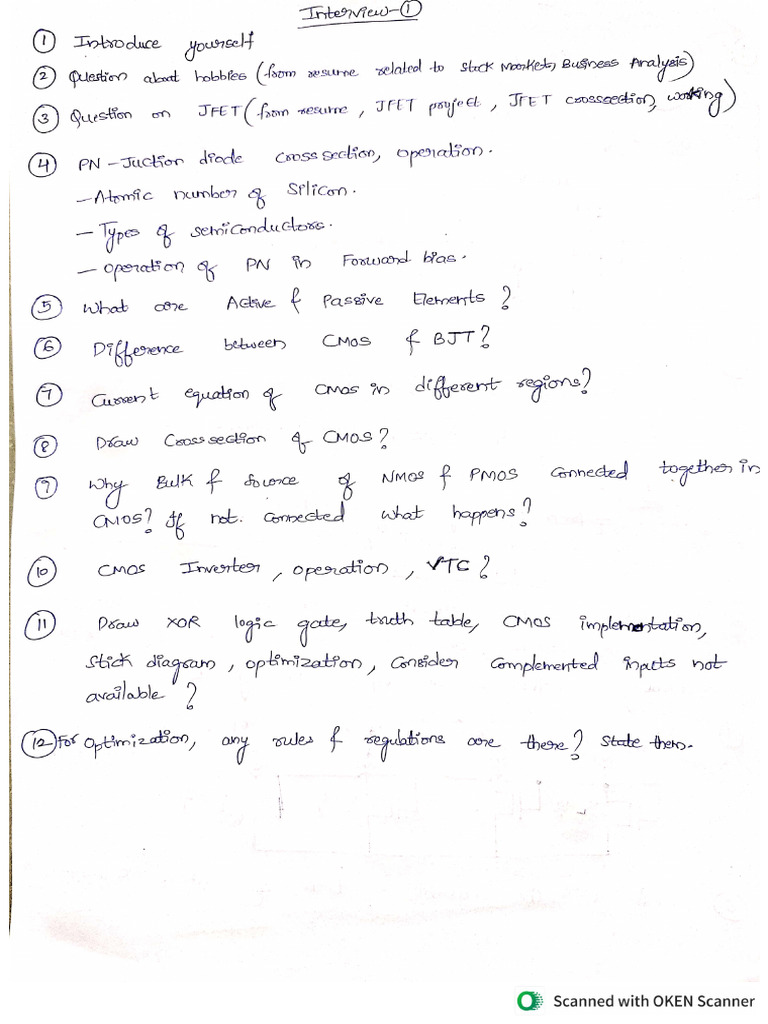 Interview-①
① Introduce yourself
② Question about hobbies (from resume related to Stock Market, Business Analysis)
③ Question on JFET (from resume, JFET project, JFET crosssection, working)
④ PN-Juction diode cross section, operation.
- Atomic number of Silicon.
- Types of semiconductors.
- operation of PN in Forward bias.
⑤ What are Active & Passive Elements?
⑥ Difference between CMOS & BJT?
⑦ Current equation of CMOS in different regions?
⑧ Draw Cross section of CMOS?
⑨ Why Bulk & source of NMOS & PMOS connected together in
CMOS? If not connected what happens?
⑩ CMOS Inverter, operation, VTC?
⑪ Draw XOR logic gate, truth table, CMOS implementation,
stick diagram, optimization, consider complemented inputs not
available?
⑫ For optimization, any rules & regulations are there? State them.
Scanned with OKEN Scanner